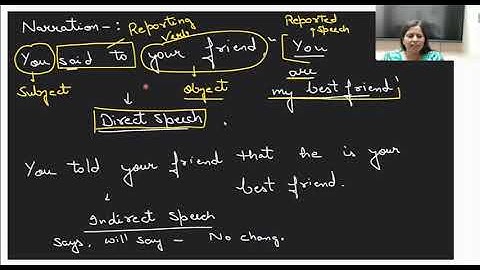 Narration -: Reporting Verb Reported Speech
You said to your friend " You
Subject object are
my best friend'
↓
Direct Speech .
You told your friend that he is your
best friend.
↓
Indirect Speech
says, will say - No chang.